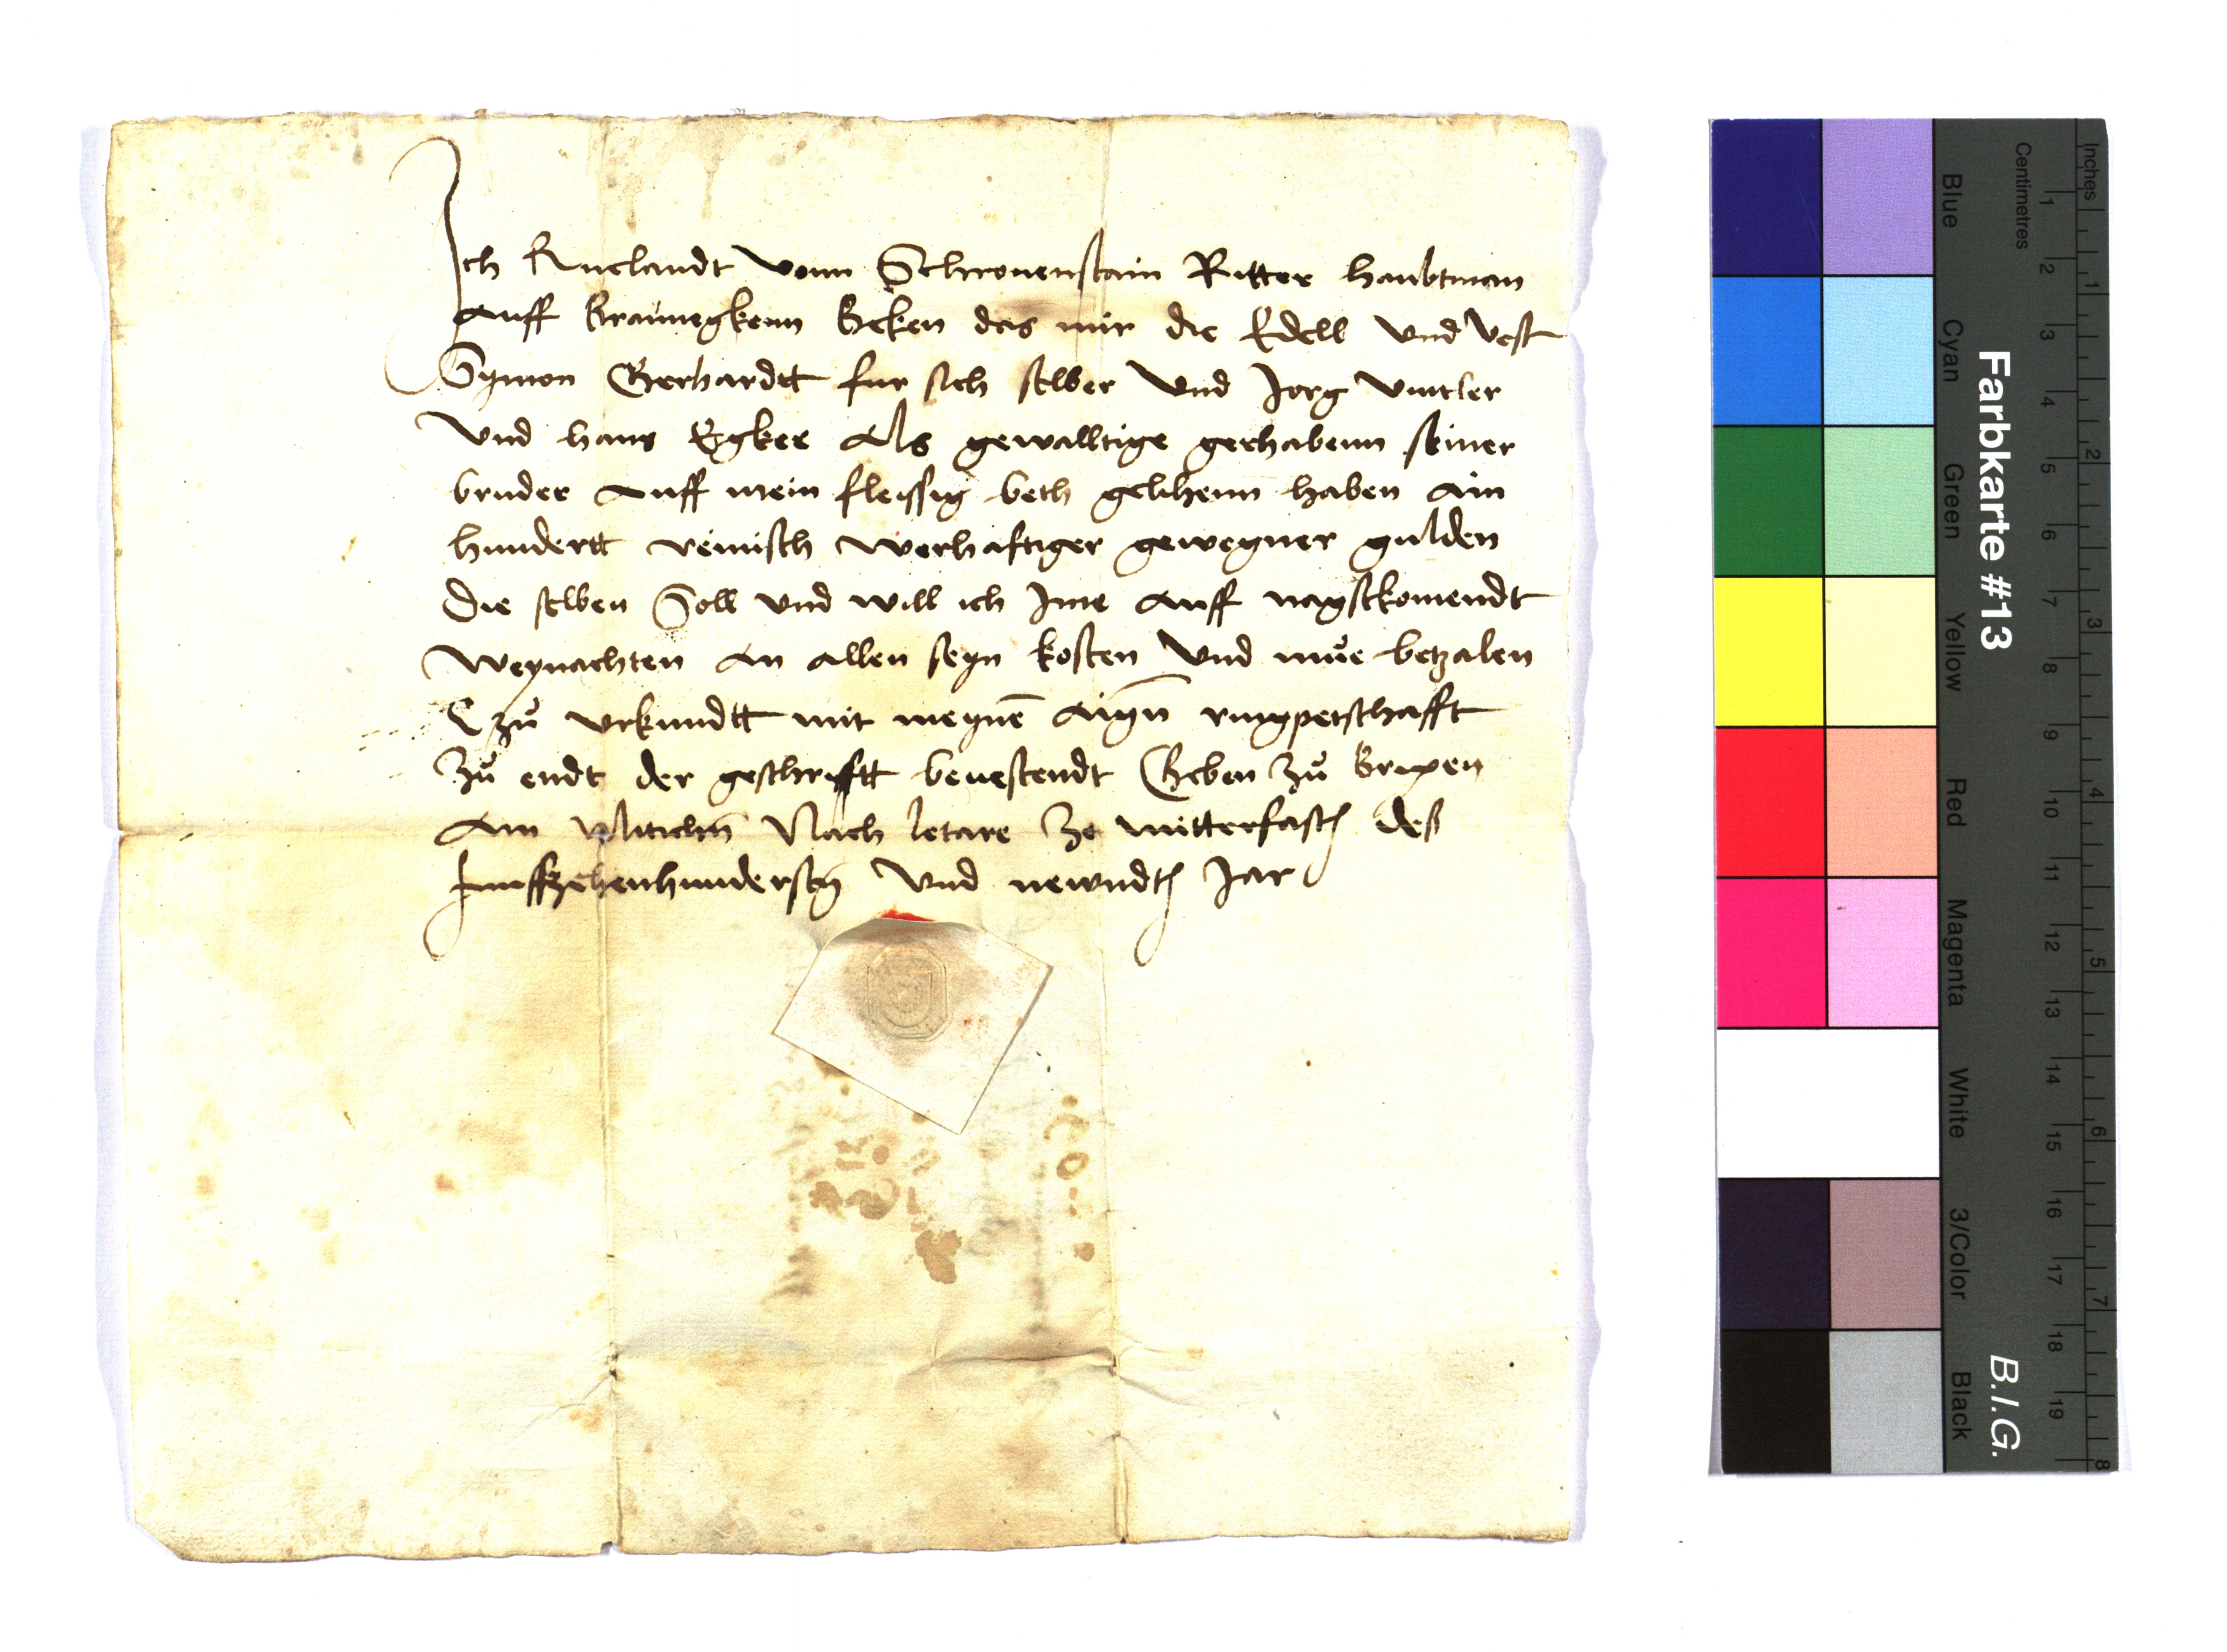 Ich Ruelandt vonn Schrovenstain Ritter haubtman
auff Braunegkenn Beken das mir die Edell und vest
Symon Gerhardtt fur sich selber Und Jorg vintler
Und hans Egker Als gewalltige gerhabenn seiner
bruder auff mein fleissig beth gelihenn haben ain
hundertt reinisch werhaftiger gewegner gulden
Die selben Soll und will ich Ime auff nagstkomendt
Weynachten an allen seyn kosten Und můe betzalen
zů urkundtt mit meynē aigñ ringpetschafft
Zů endt der geschrifftt bevestendt Geben Zů Brixen
Am Miticħn Nach letare Ze mitterfastn des
funffzehenhundersten Und newndtn Jar
Inches
Centimetres
1 2 3 4 5 6 7 8 9 10 11 12 13 14 15 16 17 18 19
1 2 3 4 5 6 7 8
Farbkarte #13
B.I.G.
Blue
Cyan
Green
Yellow
Red
Magenta
White
3/Color
Black